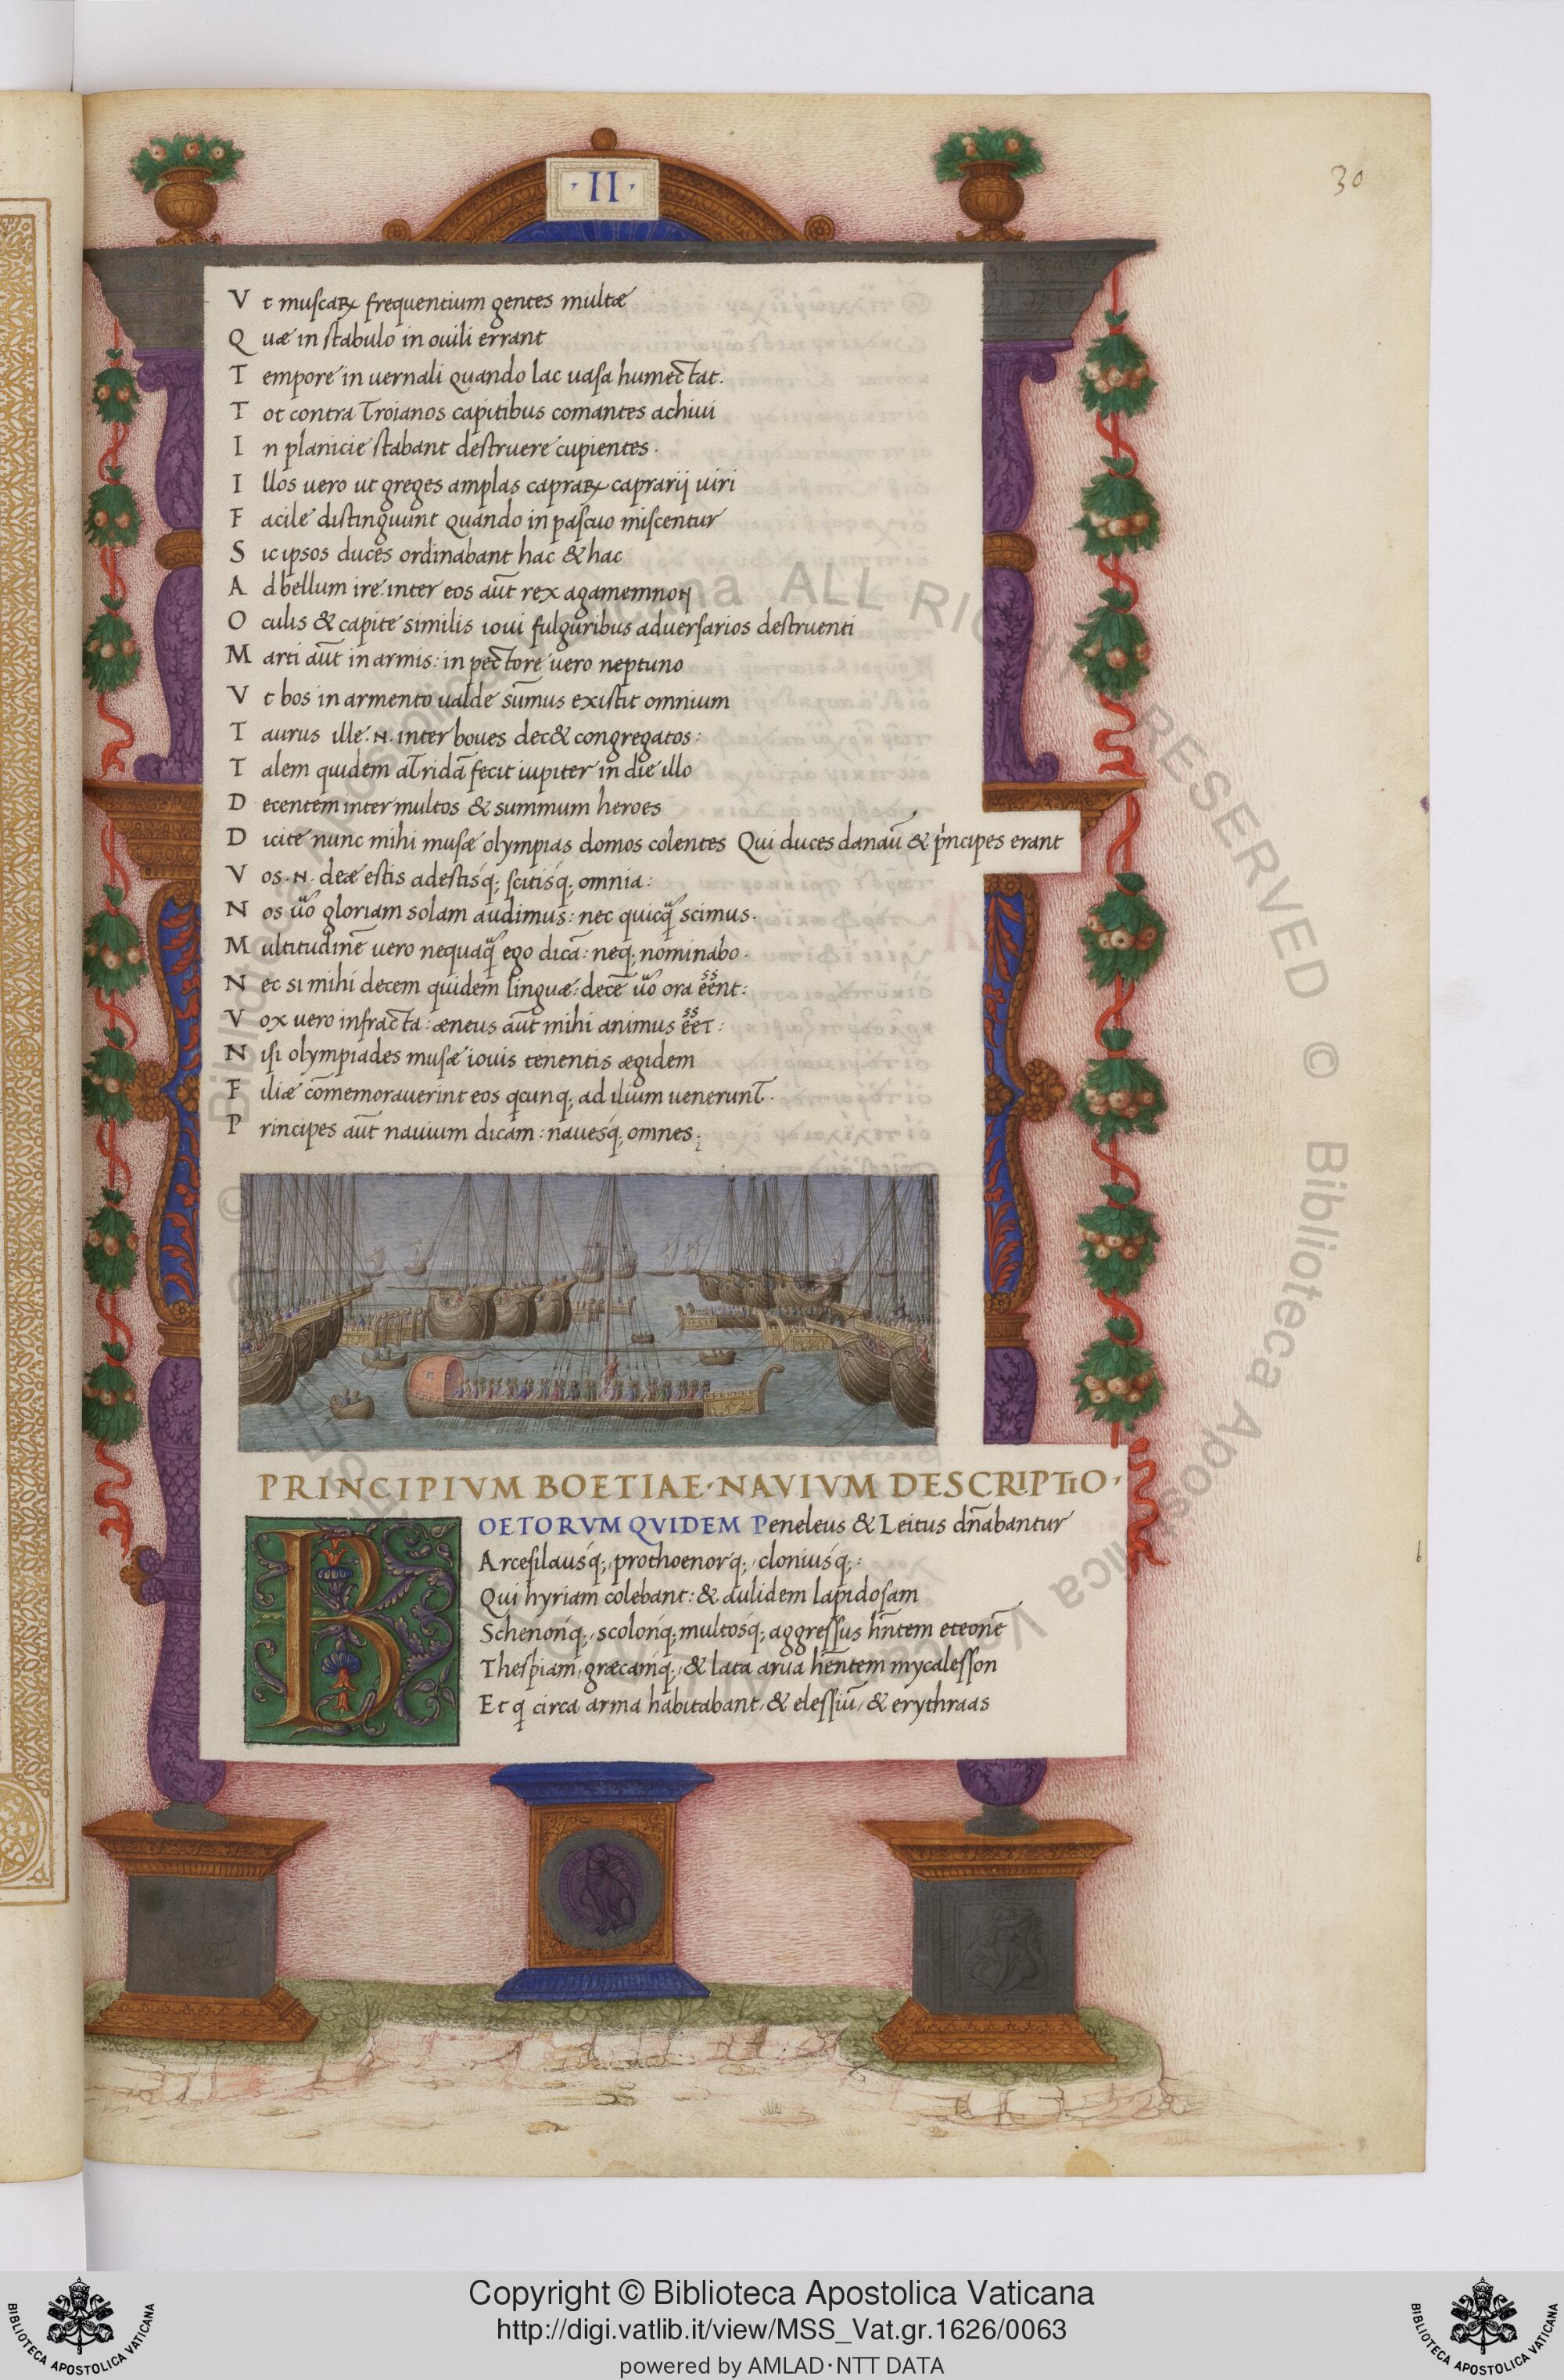 30
·II·
Vt muscaꝝ frequentium gentes multæ
Quæ in stabulo in ouili errant
Tempore in uernali quando lac uasa humectat.
Tot contra Troianos capitibus comantes achiui
In planicie stabant destruere cupientes.
Illos uero ut greges amplas capraꝝ caprarij uiri
Facile distinguunt quando in pascuo miscentur
Sic ipsos duces ordinabant hac & hac
Ad bellum ire: inter eos aūt rex agamemnon
Oculis & capite similis ioui fulguribus aduersarios destruenti
Marti aūt in armis: in pectore uero neptuno
Vt bos in armento ualde sūmus existit omnium
Taurus ille .N. inter boues dec& congregatos:
Talem quidem atridā fecit iupiter in die illo
Decentem inter multos & summum heroes
Dicite nunc mihi musæ olympias domos colentes Qui duces danaū & pͥncipes erant
Vos .N. deæ estis adestisq; scitisq; omnia:
Nos uͦo gloriam solam audimus: nec quicq̄ scimus.
Multitudinē uero nequaq̄ ego dicā: neq; nominabo.
Nec si mihi decem quidem linguæ: decē uͦo ora eēnt:
Vox uero infracta: æneus aūt mihi animus eēt:
Nisi olympiades musæ iouis tenentis ægidem
Filiæ cōmemorauerint eos qcunq; ad ilium uenerunt.
Principes aūt nauium dicam: nauesq; omnes.
PRINCIPIVM BOETIAE·NAVIVM DESCRIPTIO·
BOETORVM QVIDEM Peneleus & Leitus dn̄abantur
Arcesilausq; prothoenorq; cloniusq;:
Qui hyriam colebant: & aulidem lapidosam
Schenonq; scolonq; multosq; aggressus hn̄tem eteonē
Thespiam, græcamq; & lata arua hēntem mycalesson
Et q circa arma habitabant, & elessiū, & erythraas
Copyright © Biblioteca Apostolica Vaticana
http://digi.vatlib.it/view/MSS_Vat.gr.1626/0063
powered by AMLAD·NTT DATA
BIBLIOTECA APOSTOLICA VATICANA
BIBLIOTECA APOSTOLICA VATICANA